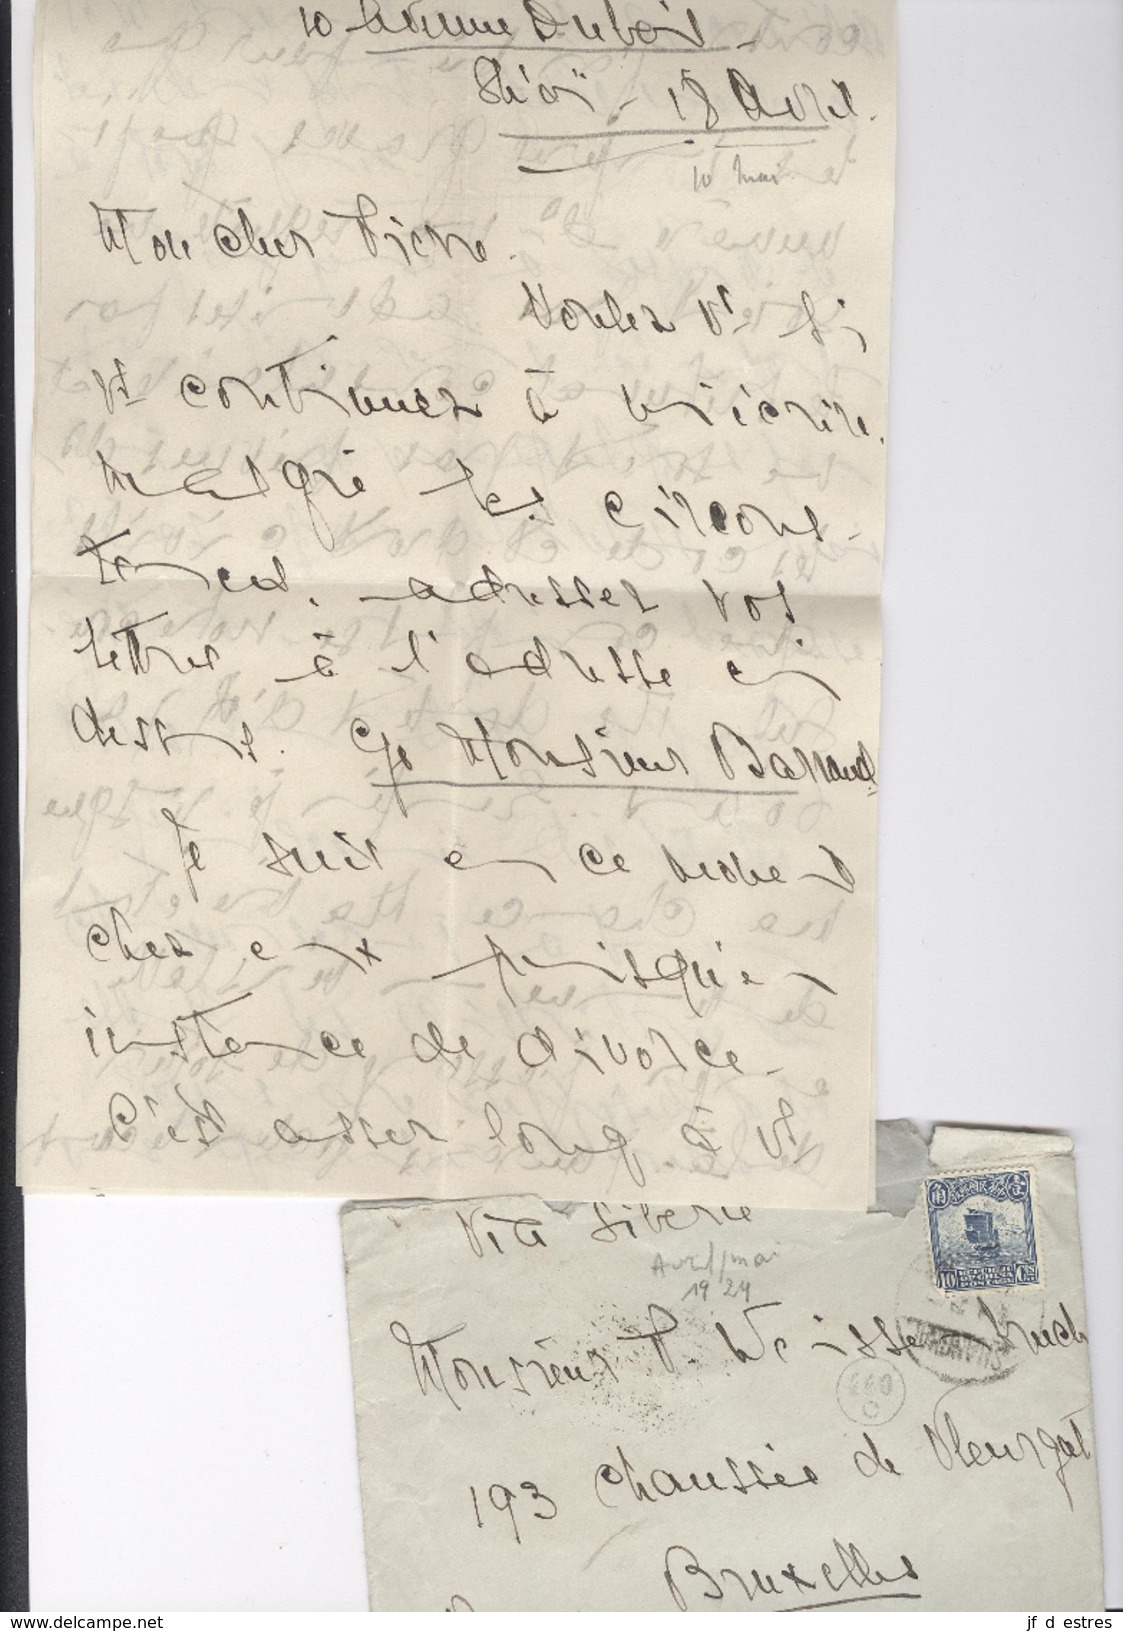 10 Avenue Dubail
18 Avril.
10 mai
Mon cher Pierre.
Voulez Vs si
Vs continuez à m'écrire
malgré les circons-
tances. adressez vos
lettres à l'adresse ci
dessus. c/o Monsieur Barraud
Je suis en ce moment
chez eux puisqu'en
instance de divorce.
C'est assez long à Vs
Via Sibérie
Avril/mai
1924
Monsieur P. Weissenbruch
193 Chaussée de Vleurgat
Bruxelles
www.delcampe.net
jf_d_estres